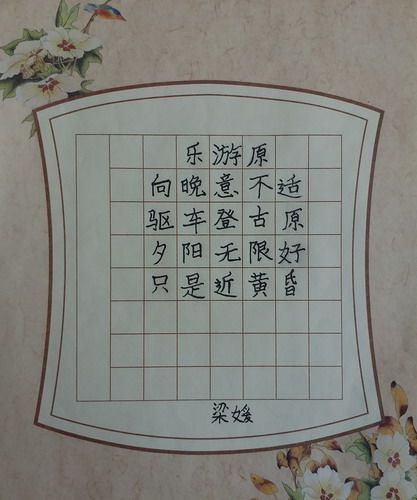 乐游原
向晚意不适
驱车登古原
夕阳无限好
只是近黄昏
梁媛